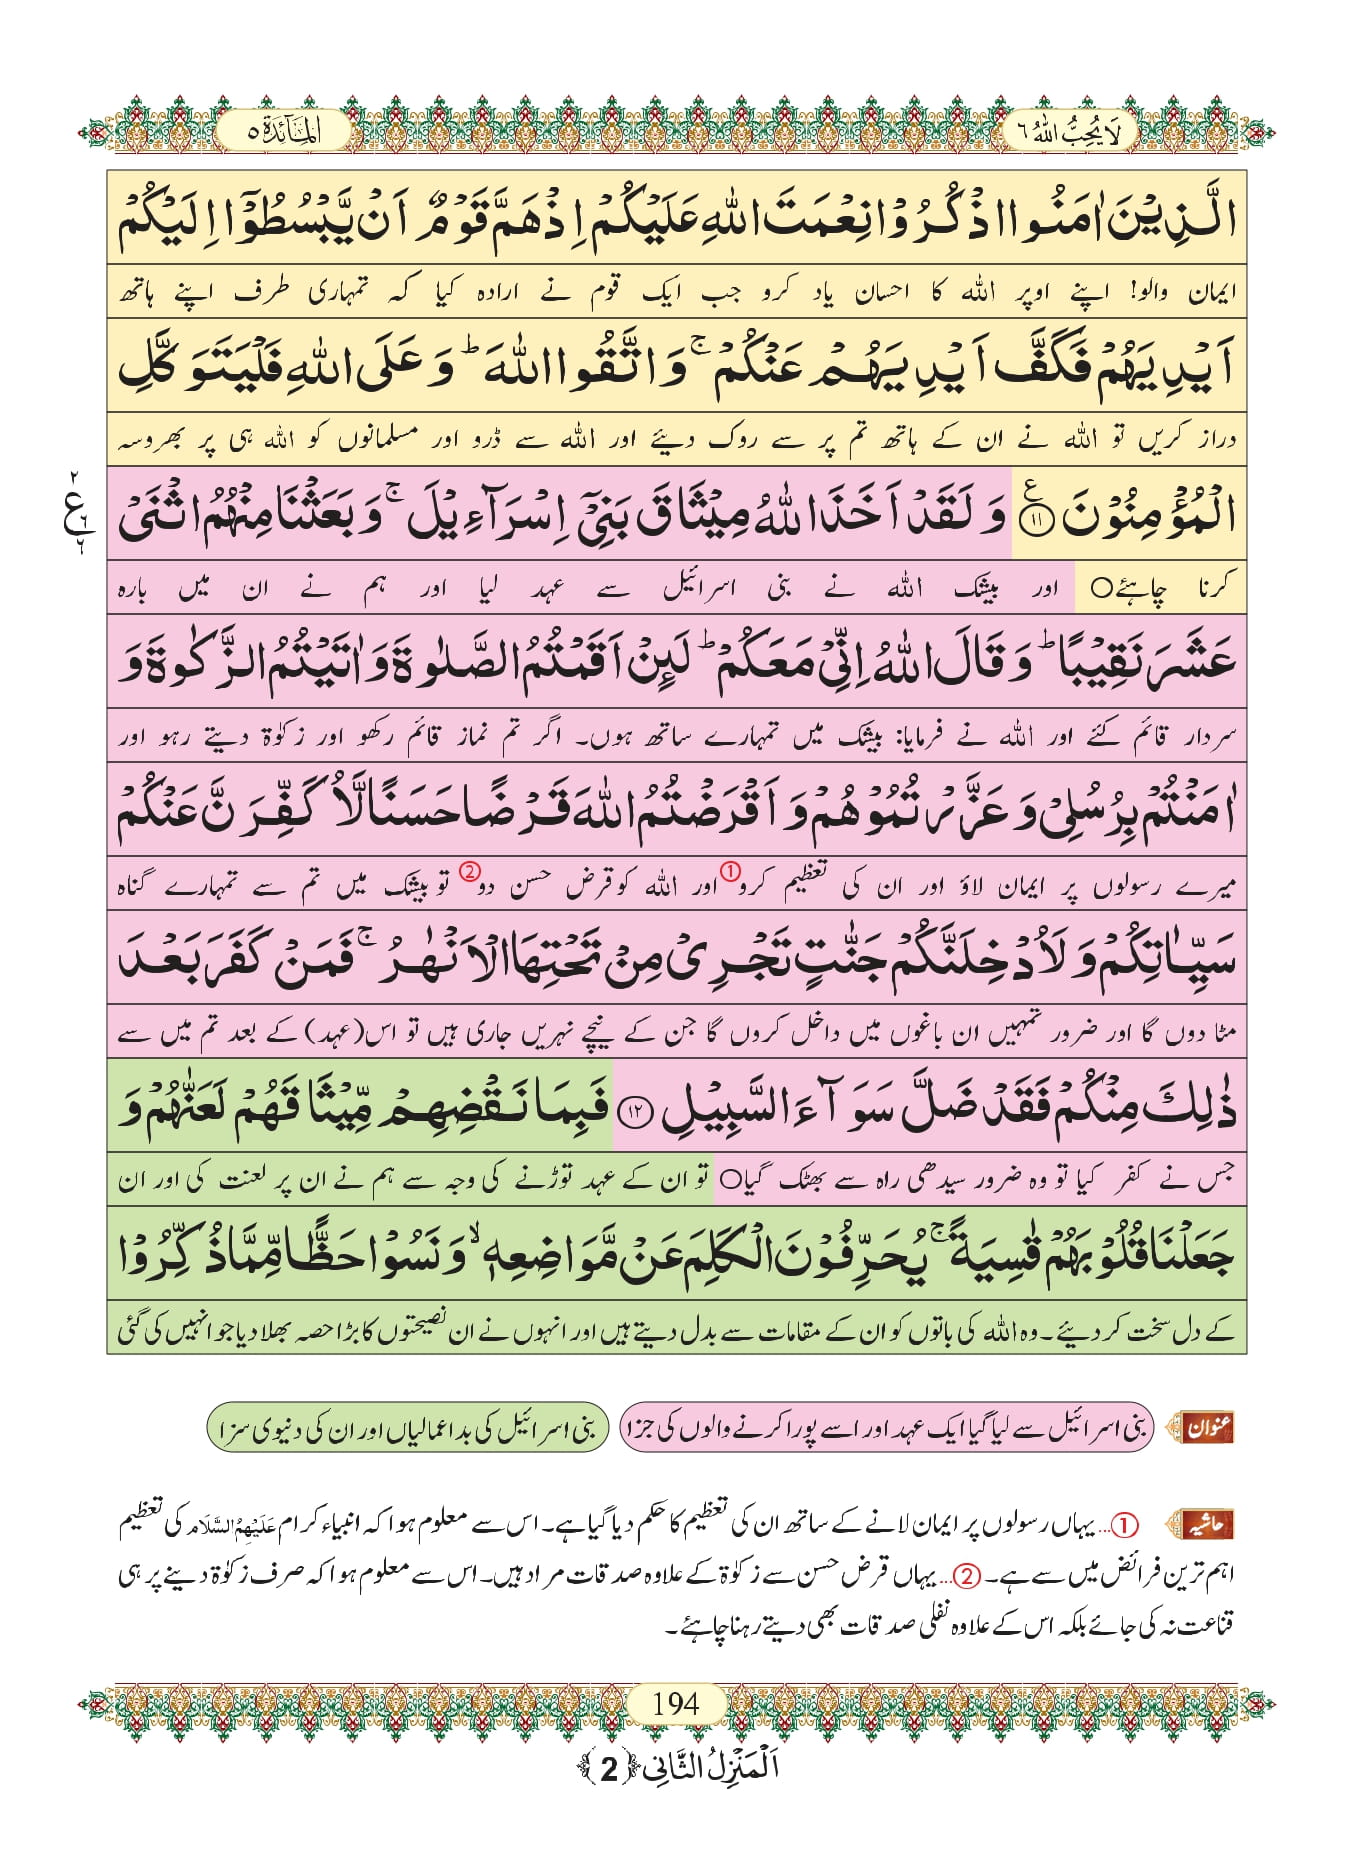 لَا یُحِبُّ اللّٰهُ ٦
اَلْمَآئِدَة ٥
الَّذِیْنَ اٰمَنُوا اذْكُرُوْا نِعْمَتَ اللّٰهِ عَلَیْكُمْ اِذْ هَمَّ قَوْمٌ اَنْ یَّبْسُطُوْۤا اِلَیْكُمْ
ایمان والو! اپنے اوپر اللہ کا احسان یاد کرو جب ایک قوم نے ارادہ کیا کہ تمہاری طرف اپنے ہاتھ
اَیْدِیَهُمْ فَكَفَّ اَیْدِیَهُمْ عَنْكُمْۚ وَ اتَّقُوا اللّٰهَؕ وَ عَلَى اللّٰهِ فَلْیَتَوَكَّلِ
دراز کریں تو اللہ نے ان کے ہاتھ تم پر سے روک دیئے اور اللہ سے ڈرو اور مسلمانوں کو اللہ ہی پر بھروسہ
الْمُؤْمِنُوْنَ۠ ﴿۱۱﴾ وَ لَقَدْ اَخَذَ اللّٰهُ مِیْثَاقَ بَنِیْۤ اِسْرَآءِیْلَۚ وَ بَعَثْنَا مِنْهُمُ اثْنَیْ
٢
ع
٦
٦
کرنا چاہئے○ اور بیشک اللہ نے بنی اسرائیل سے عہد لیا اور ہم نے ان میں بارہ
عَشَرَ نَقِیْبًاؕ وَ قَالَ اللّٰهُ اِنِّیْ مَعَكُمْؕ لَىِٕنْ اَقَمْتُمُ الصَّلٰوةَ وَ اٰتَیْتُمُ الزَّكٰوةَ وَ
سردار قائم کئے اور اللہ نے فرمایا: بیشک میں تمہارے ساتھ ہوں۔ اگر تم نماز قائم رکھو اور زکوٰۃ دیتے رہو اور
اٰمَنْتُمْ بِرُسُلِیْ وَ عَزَّرْتُمُوْهُمْ وَ اَقْرَضْتُمُ اللّٰهَ قَرْضًا حَسَنًا لَّاُكَفِّرَنَّ عَنْكُمْ
میرے رسولوں پر ایمان لاؤ اور ان کی تعظیم کرو① اور اللہ کو قرض حسن دو② تو بیشک میں تم سے تمہارے گناہ
سَیِّاٰتِكُمْ وَ لَاُدْخِلَنَّكُمْ جَنّٰتٍ تَجْرِیْ مِنْ تَحْتِهَا الْاَنْهٰرُۚ فَمَنْ كَفَرَ بَعْدَ
مٹا دوں گا اور ضرور تمہیں ان باغوں میں داخل کروں گا جن کے نیچے نہریں جاری ہیں تو اس (عہد) کے بعد تم میں سے
ذٰلِكَ مِنْكُمْ فَقَدْ ضَلَّ سَوَآءَ السَّبِیْلِ ﴿۱۲﴾ فَبِمَا نَقْضِهِمْ مِّیْثَاقَهُمْ لَعَنّٰهُمْ وَ
جس نے کفر کیا تو وہ ضرور سیدھی راہ سے بھٹک گیا○ تو ان کے عہد توڑنے کی وجہ سے ہم نے ان پر لعنت کی اور ان
جَعَلْنَا قُلُوْبَهُمْ قٰسِیَةًۚ یُحَرِّفُوْنَ الْكَلِمَ عَنْ مَّوَاضِعِهٖۙ وَ نَسُوْا حَظًّا مِّمَّا ذُكِّرُوْا
کے دل سخت کر دیئے۔ وہ اللہ کی باتوں کو ان کے مقامات سے بدل دیتے ہیں اور انہوں نے ان نصیحتوں کا بڑا حصہ بھلا دیا جو انہیں کی گئی
عنوان بنی اسرائیل سے لیا گیا ایک عہد اور اسے پورا کرنے والوں کی جزا بنی اسرائیل کی بداعمالیاں اور ان کی دنیوی سزا
حاشیہ ①... یہاں رسولوں پر ایمان لانے کے ساتھ ان کی تعظیم کا حکم دیا گیا ہے۔ اس سے معلوم ہوا کہ انبیاء کرام عَلَیْهِمُ السَّلَام کی تعظیم
اہم ترین فرائض میں سے ہے۔ ②... یہاں قرض حسن سے زکوٰۃ کے علاوہ صدقات مراد ہیں۔ اس سے معلوم ہوا کہ صرف زکوٰۃ دینے پر ہی
قناعت نہ کی جائے بلکہ اس کے علاوہ نفلی صدقات بھی دیتے رہنا چاہئے۔
194
اَلْمَنْزِلُ الثَّانِی ﴿2﴾